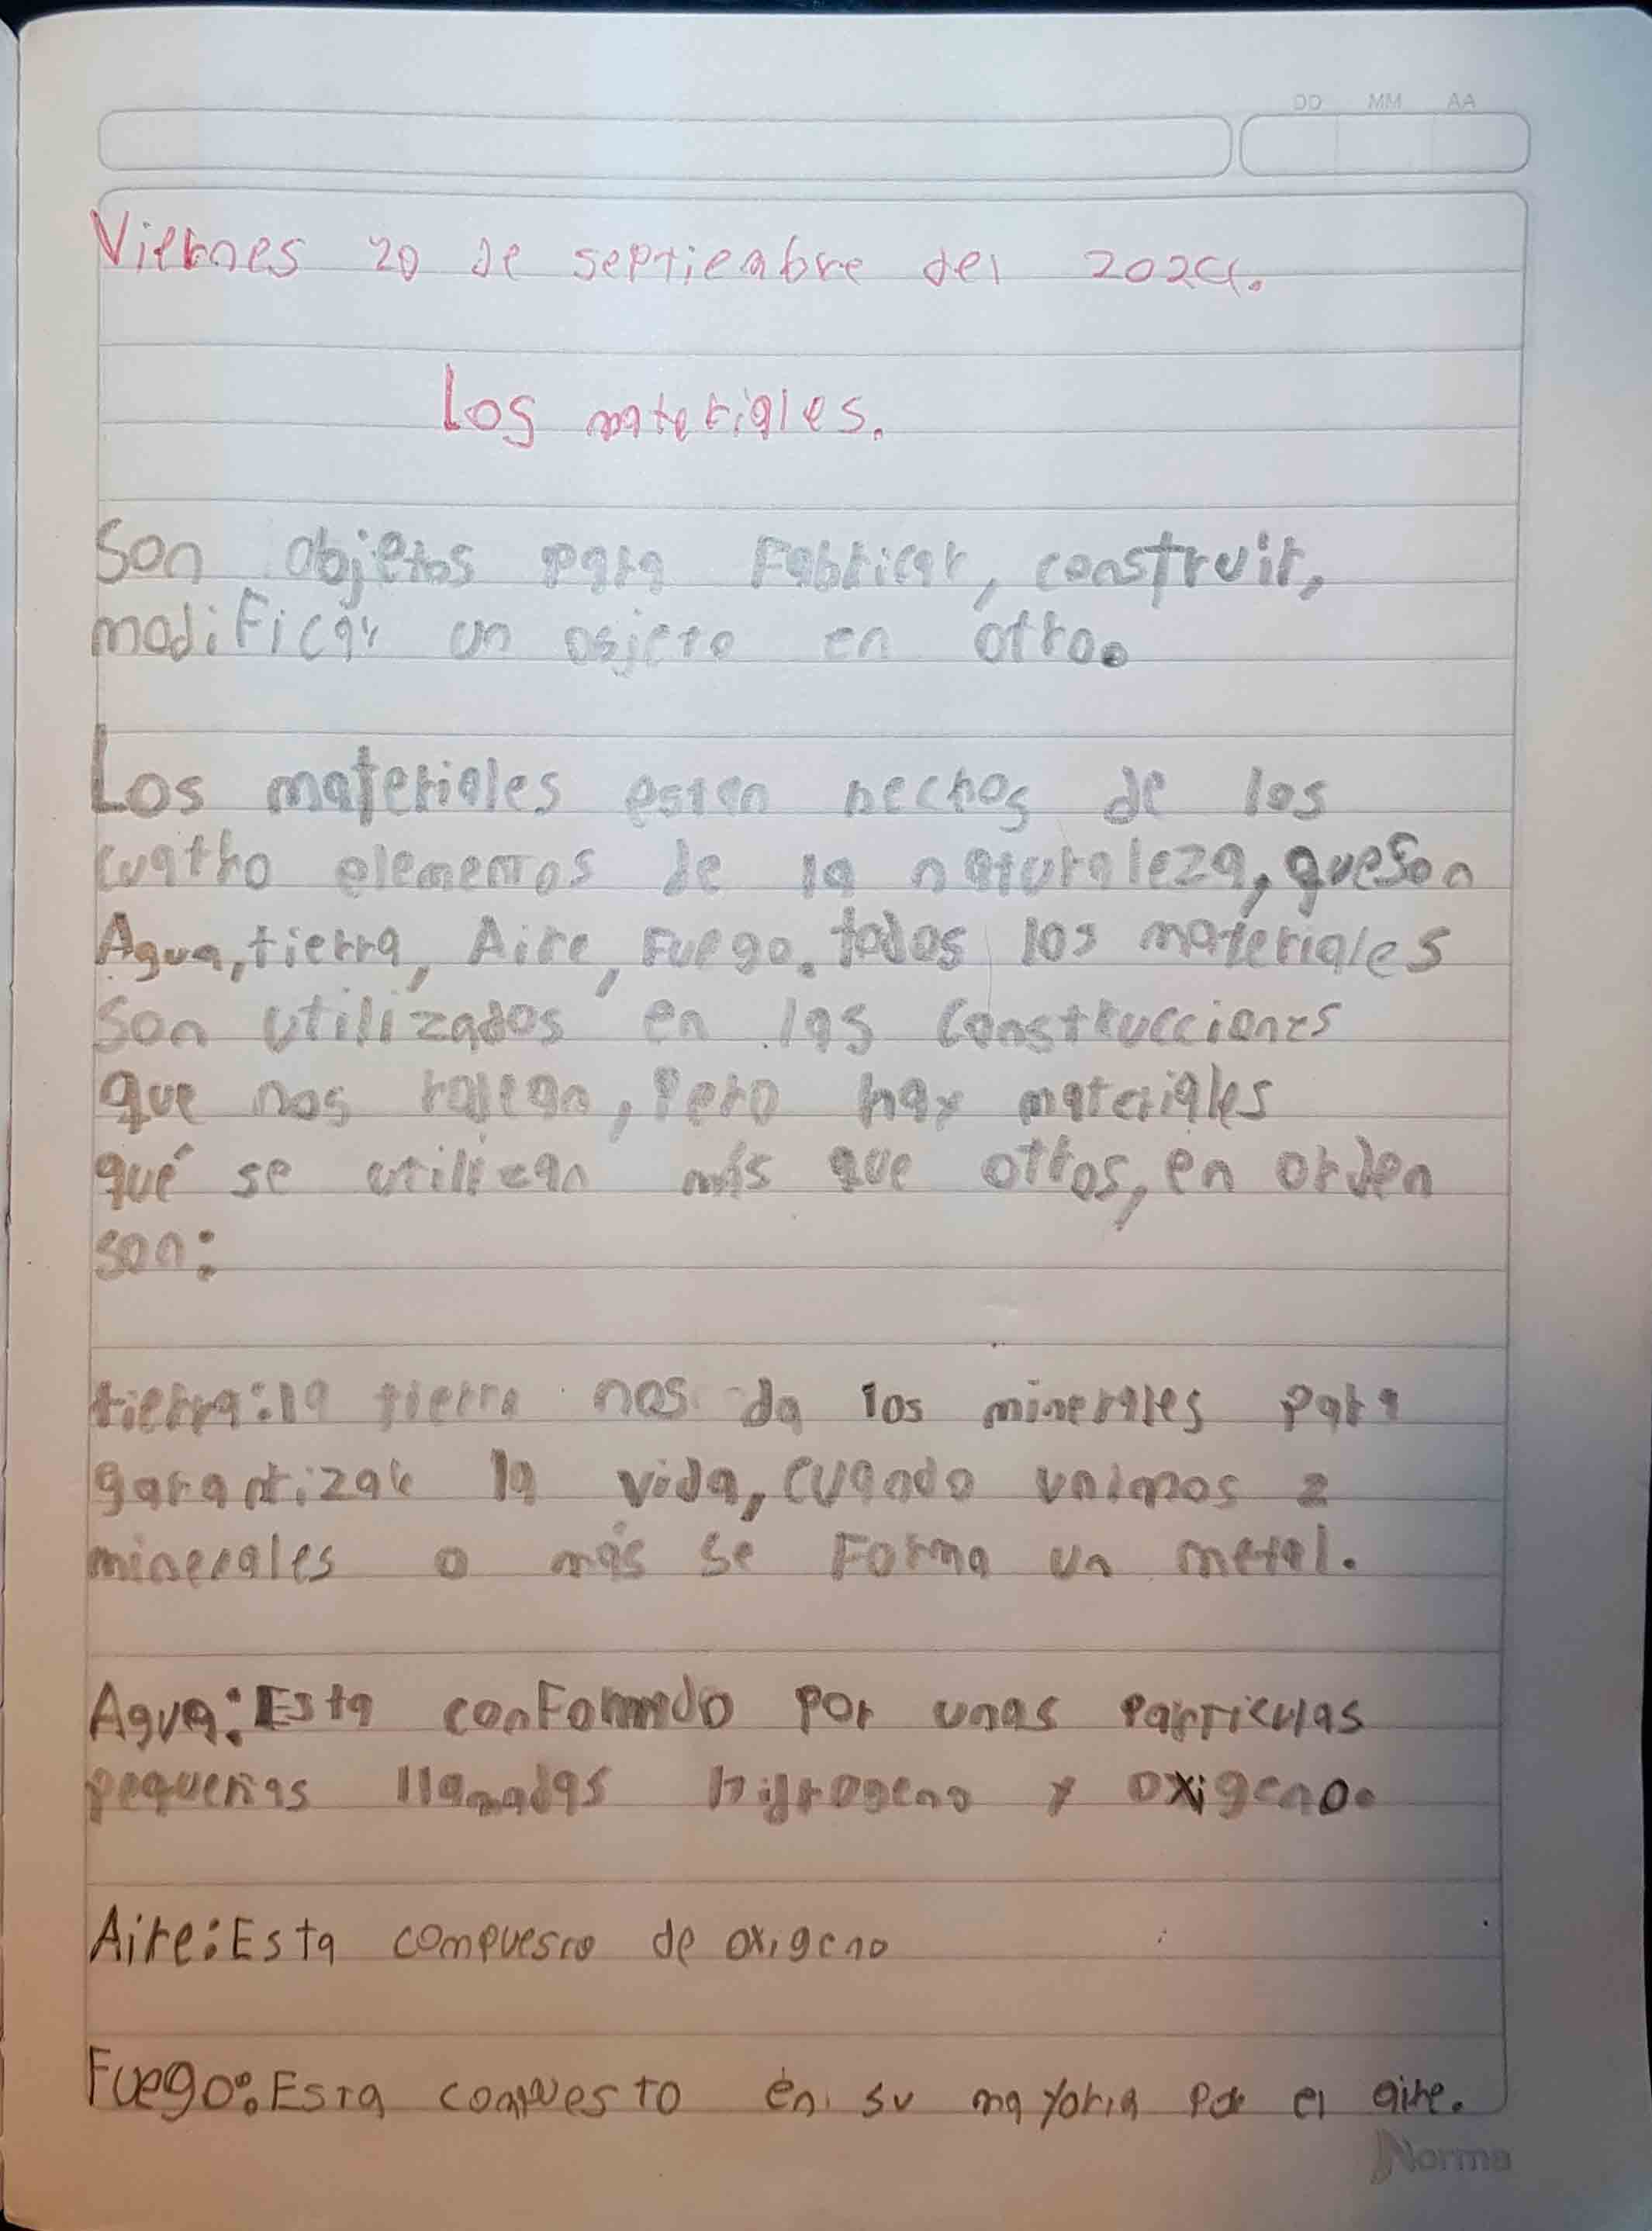 DD MM AA
Viernes 20 de septiembre del 2024.
Los materiales.
Son objetos para Fabricar, construir,
modiFicar un objeto en otro.
Los materiales estan hechos de los
cuatro elementos de la naturaleza, que son
Agua, tierra, Aire, Fuego. todos los materiales
son utilizados en las construcciones
que nos rodean, Pero hay materiales
qué se utilizan más que otros, en orden
son:
tierra: la tierra nos da los minerales para
garantizar la vida, cuando unimos 2
minerales o más se Forma un metal.
Agua: Esta conFormado por unas particulas
pequeñas llamadas hidrogeno y oxigeno.
Aire: Esta compuesto de oxigeno
Fuego: Esta compuesto en su mayoria por el aire.
Norma